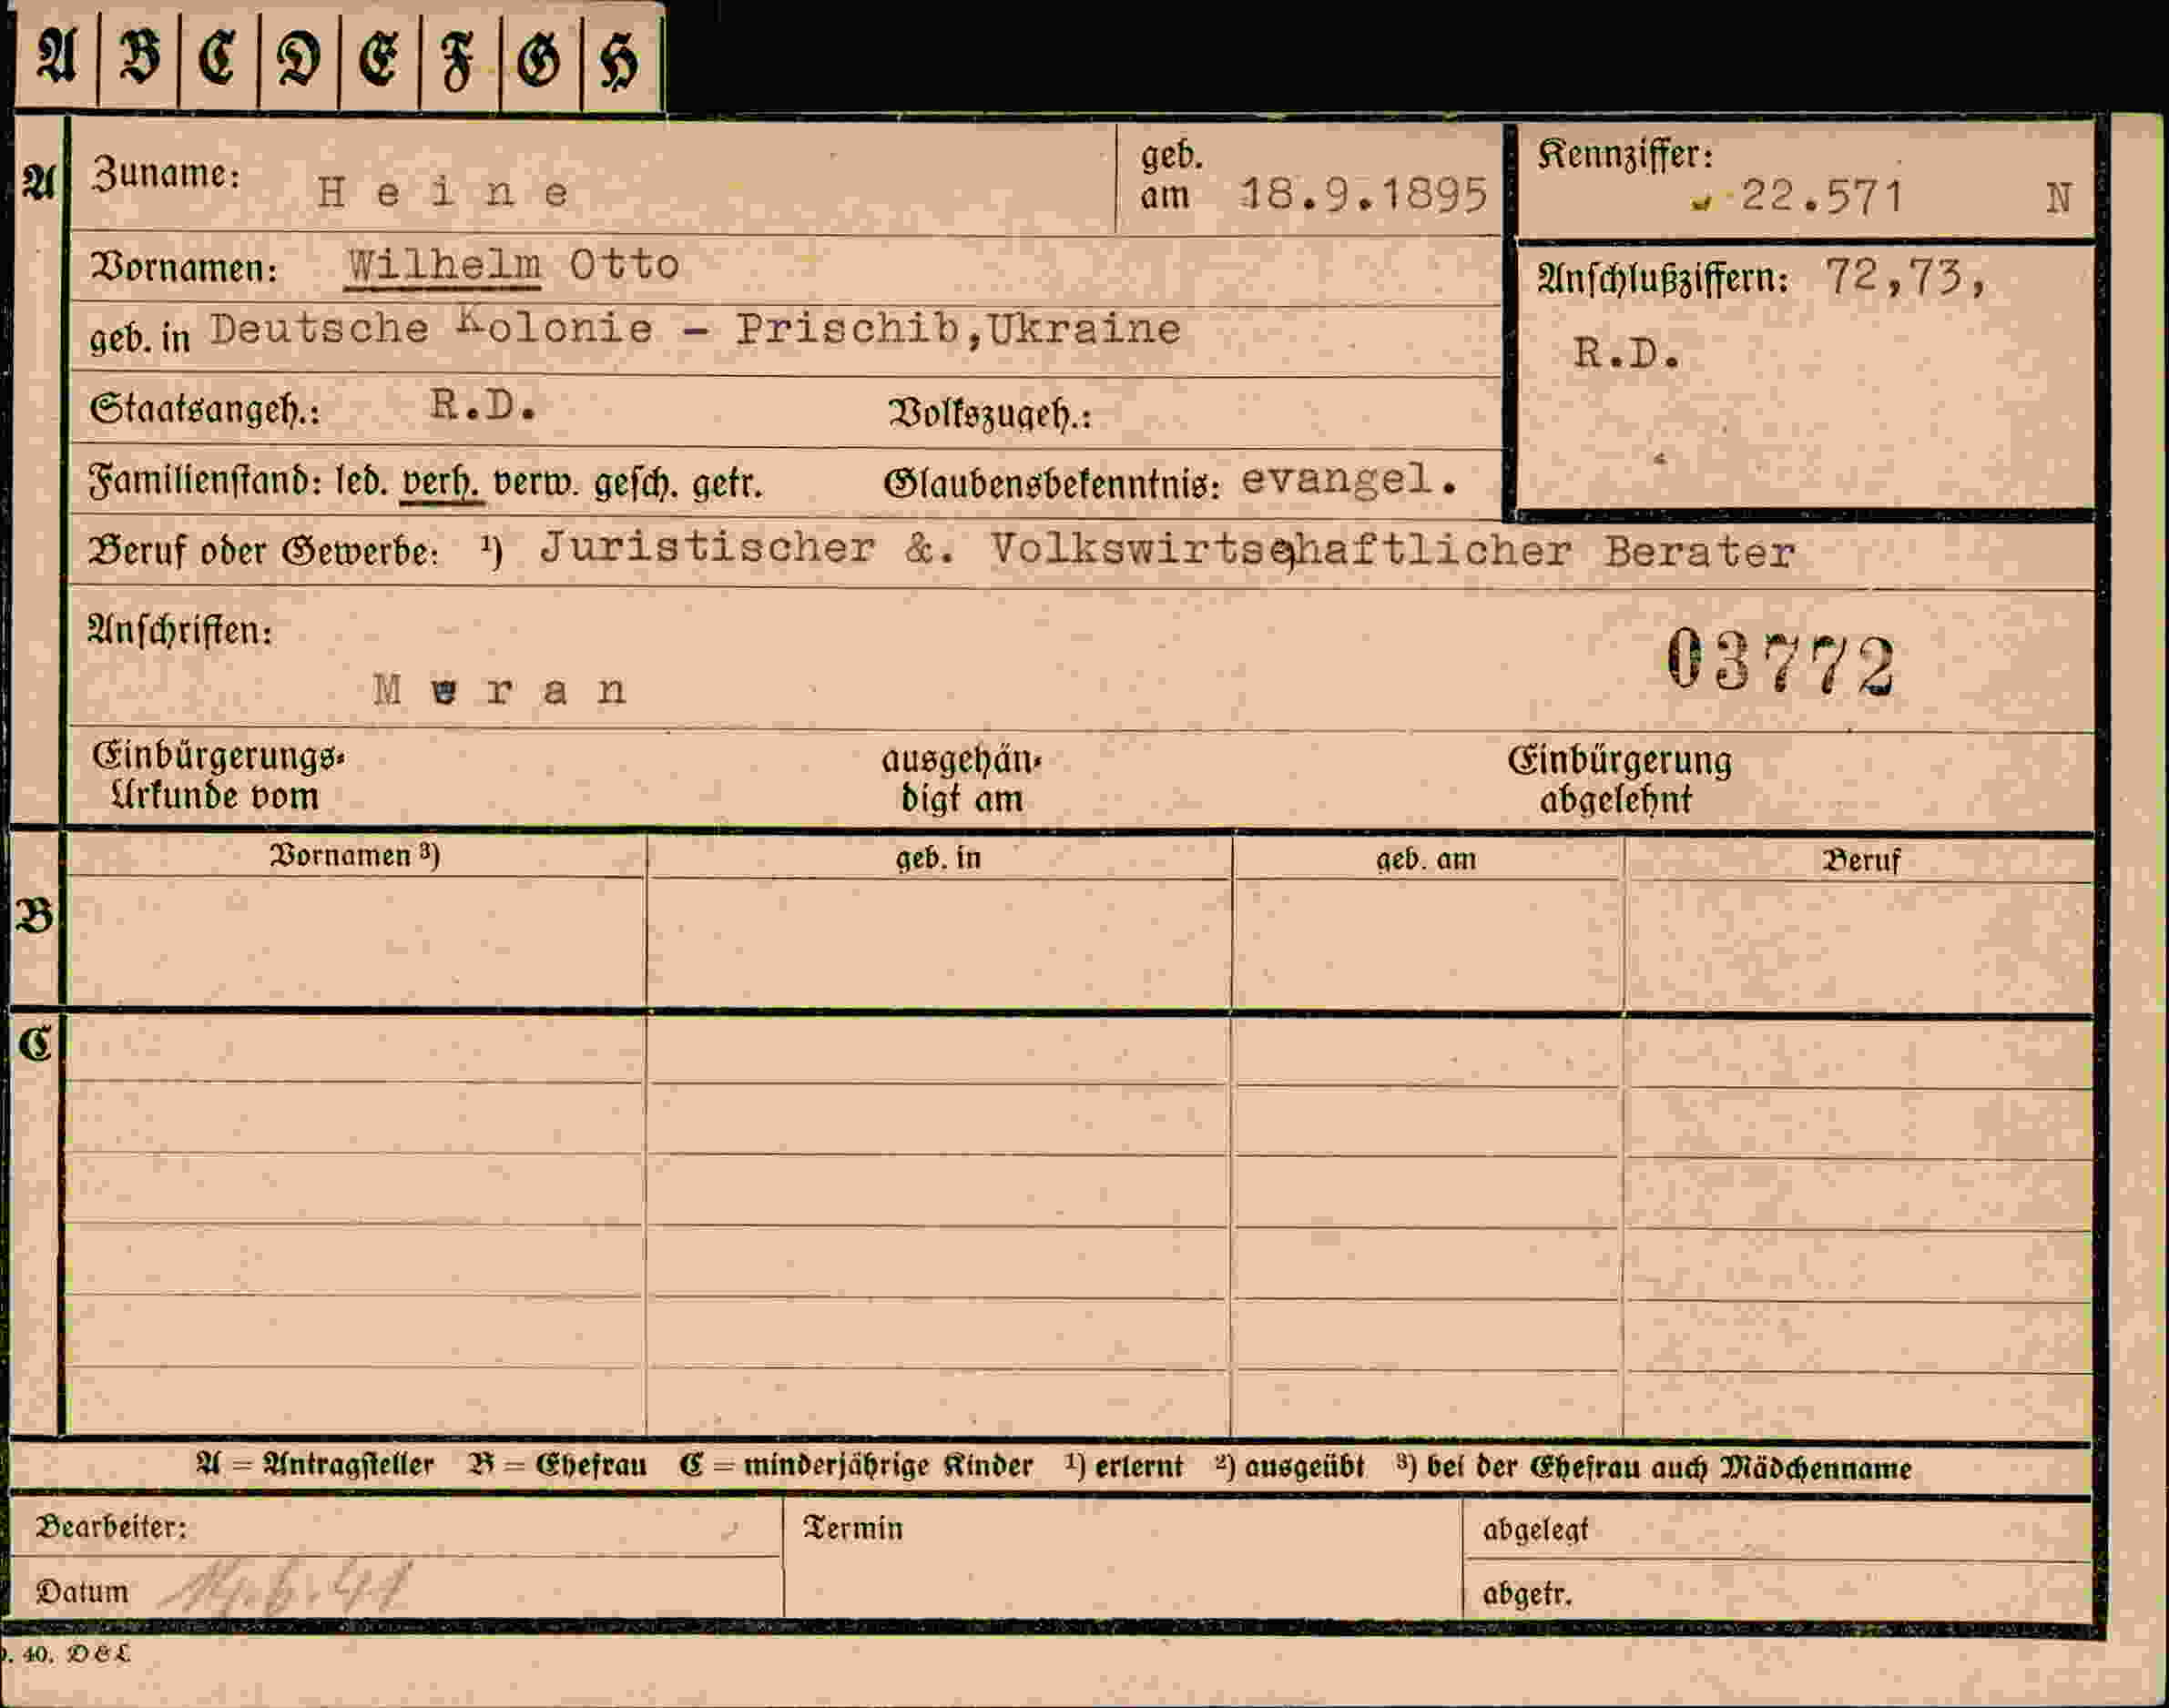 A B C D E F G H
A Zuname: Heine geb. am 18.9.1895 Kennziffer: 22.571 N
Vornamen: Wilhelm Otto
Anschlußziffern: 72,73,
geb. in Deutsche Kolonie - Prischib,Ukraine
R.D.
Staatsangeh.: R.D. Volkszugeh.:
Familienstand: led. verh. verw. gesch. getr. Glaubensbekenntnis: evangel.
Beruf oder Gewerbe: ¹) Juristischer &. Volkswirtschaftlicher Berater
Anschriften:
03772
Meran
Einbürgerungs- ausgehän- Einbürgerung
Urkunde vom digt am abgelehnt
Vornamen ³) geb. in geb. am Beruf
B
C
A = Antragsteller B = Ehefrau C = minderjährige Kinder ¹) erlernt ²) ausgeübt ³) bei der Ehefrau auch Mädchenname
Bearbeiter: Termin abgelegt
Datum abgetr.
40.